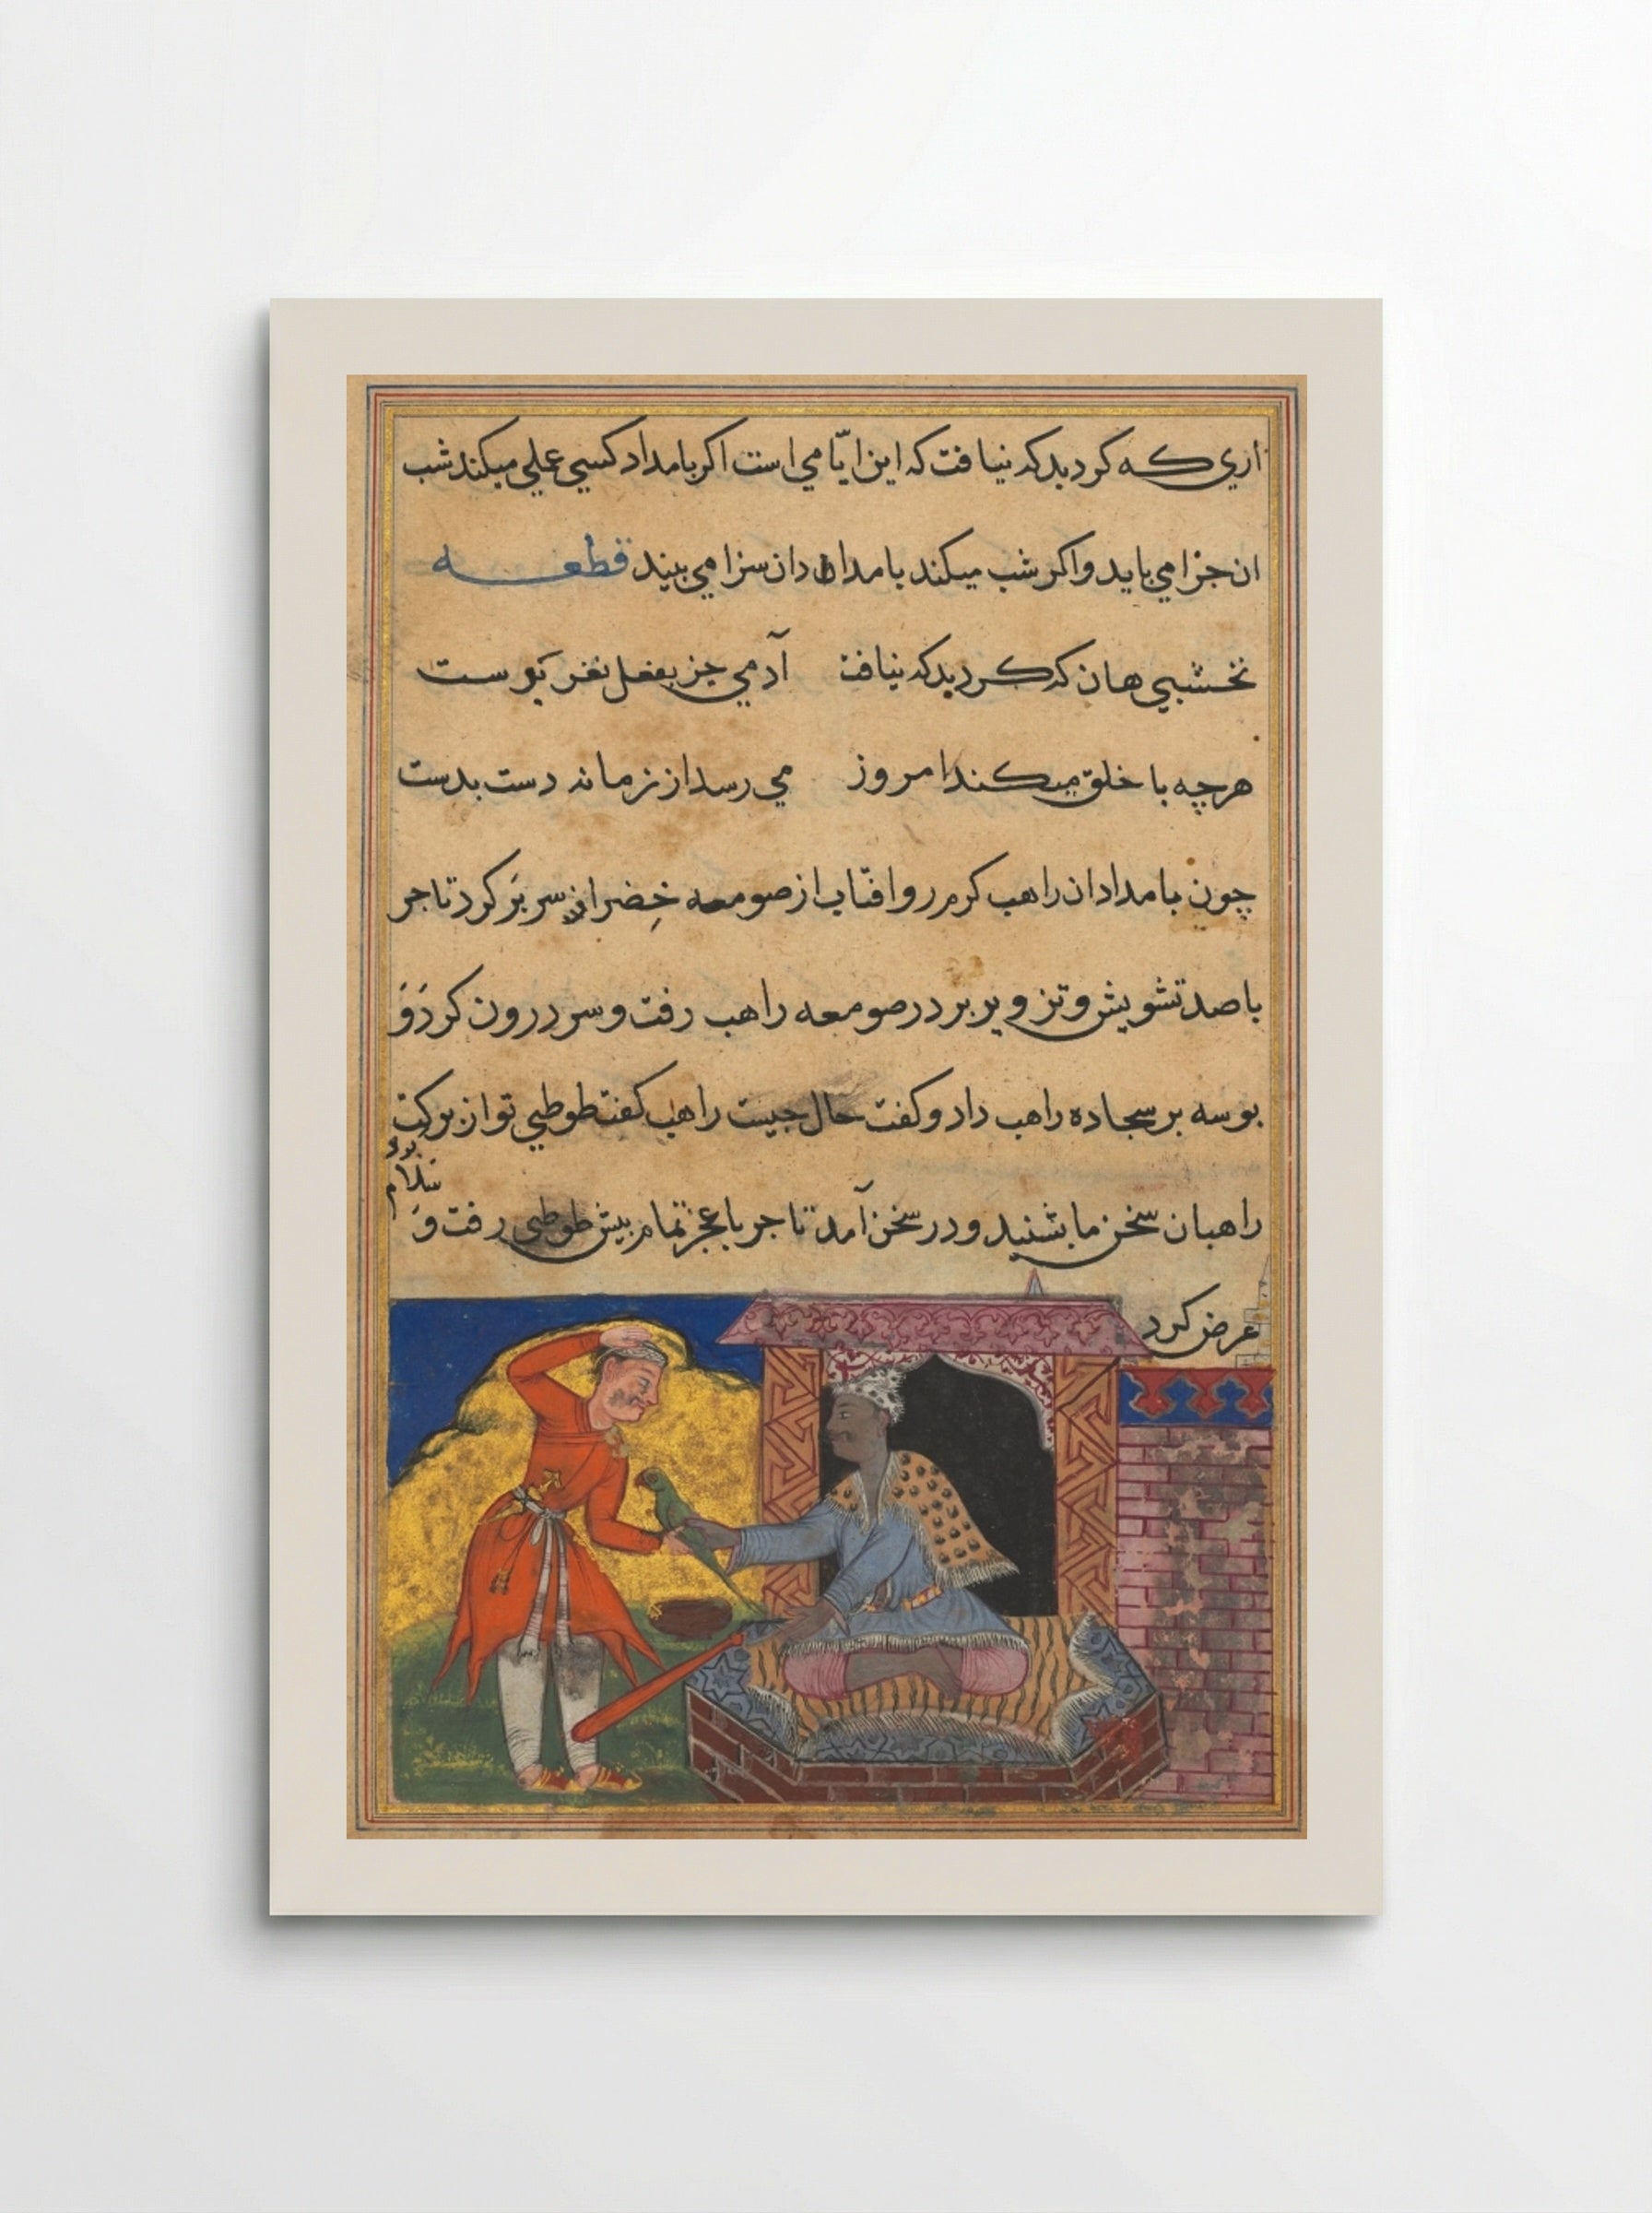 اری که کرد بد که نیافت که این ایّامی است اکر بامداد کسی عملی میکند شب
ان جزا می یابد و اکر شب میکند بامدادان سزا می بیند قطعه
نخشبی هان که کرد بد که نیافت آدمی جز بفعل نغز
هرچه با خلق میکند امروز می رسد از زمانه دست بدست
چون بامدادان راهب کرم رو افتاب از صومعه خِضرا سر بَر کرد تاجر
با صد تشویش و تز و یر بر در صومعه راهب رفت و سر درون کرد وَ
بوسه بر سجاده راهب داد و کفت حال چیست راهب کفت طوطی تو از برکت
راهبان سخن ما بشنید و در سخن آمد تاجر با عجز تمام بیش طوطی رفت وَ
سَلام
عرض کرد